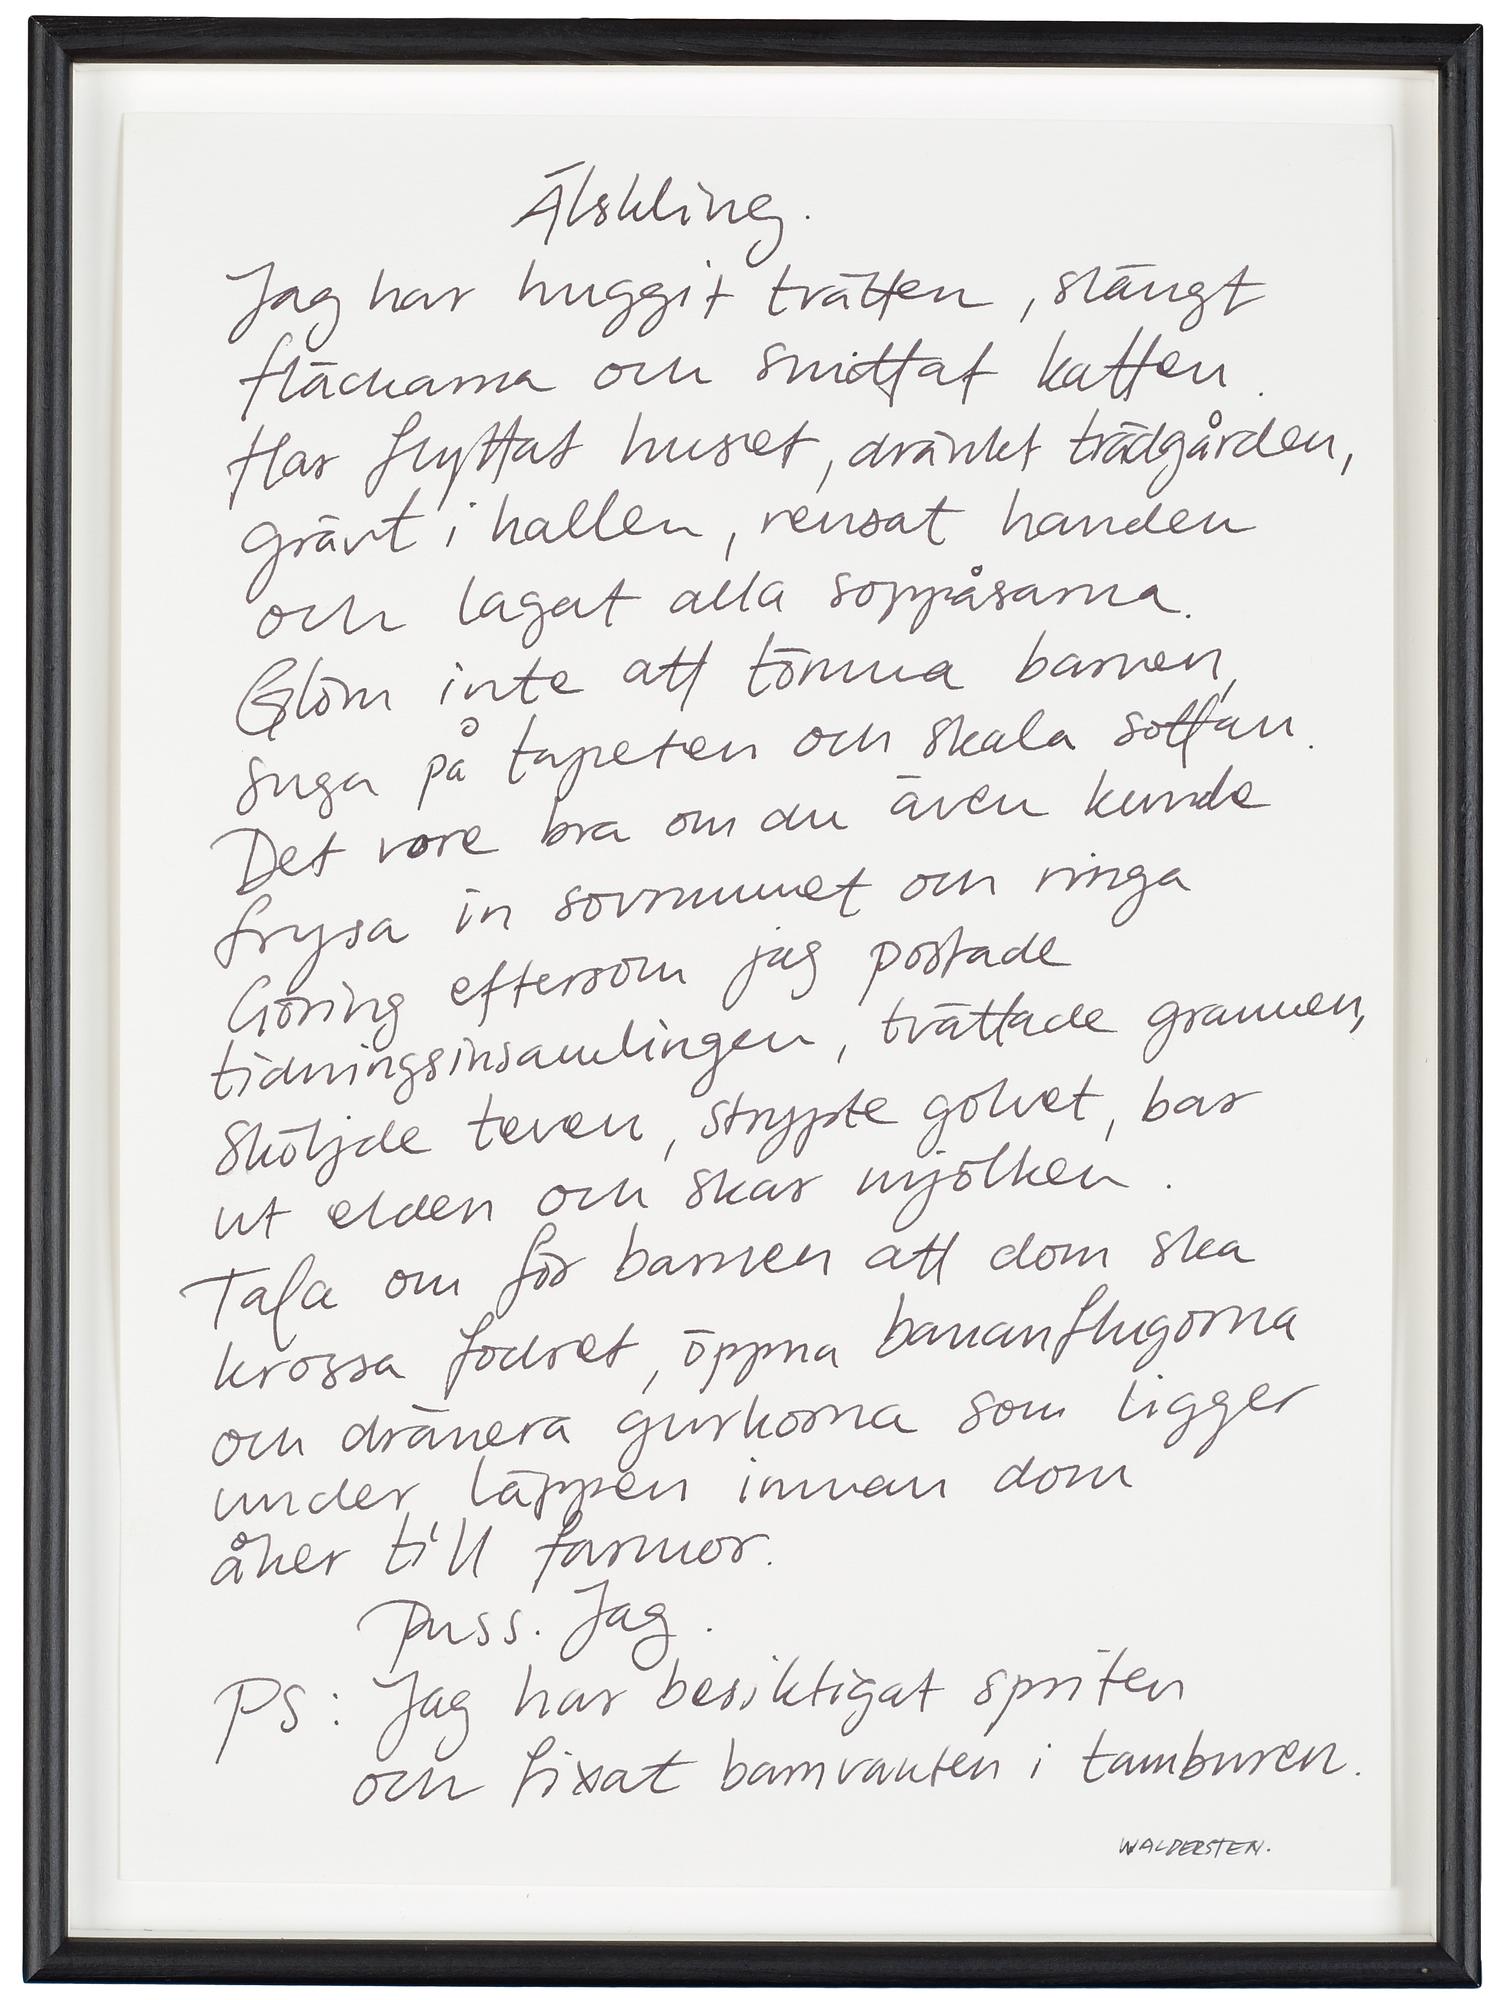 Älskling.
Jag har huggit tvätten, slängt
fläckarna och smittat katten.
Har flyttat huset, dränkt trädgården,
grävt i hallen, rensat handen
och lagat alla soppåsarna.
Glöm inte att tömma barnen,
suga på tapeten och skala soffan.
Det vore bra om du även kunde
frysa in sovrummet och ringa
Göring eftersom jag postade
tidningsinsamlingen, tvättade grannen,
sköljde teven, strypte golvet, bar
ut elden och skar mjölken.
Tala om för barnen att dom ska
krossa fodret, öppna bananflugorna
och dränera gurkorna som ligger
under läppen innan dom
åker till farmor.
Puss. Jag.
PS: Jag har besiktigat spriten
och fixat barnvakten i tamburen.
WALDERSTEN.